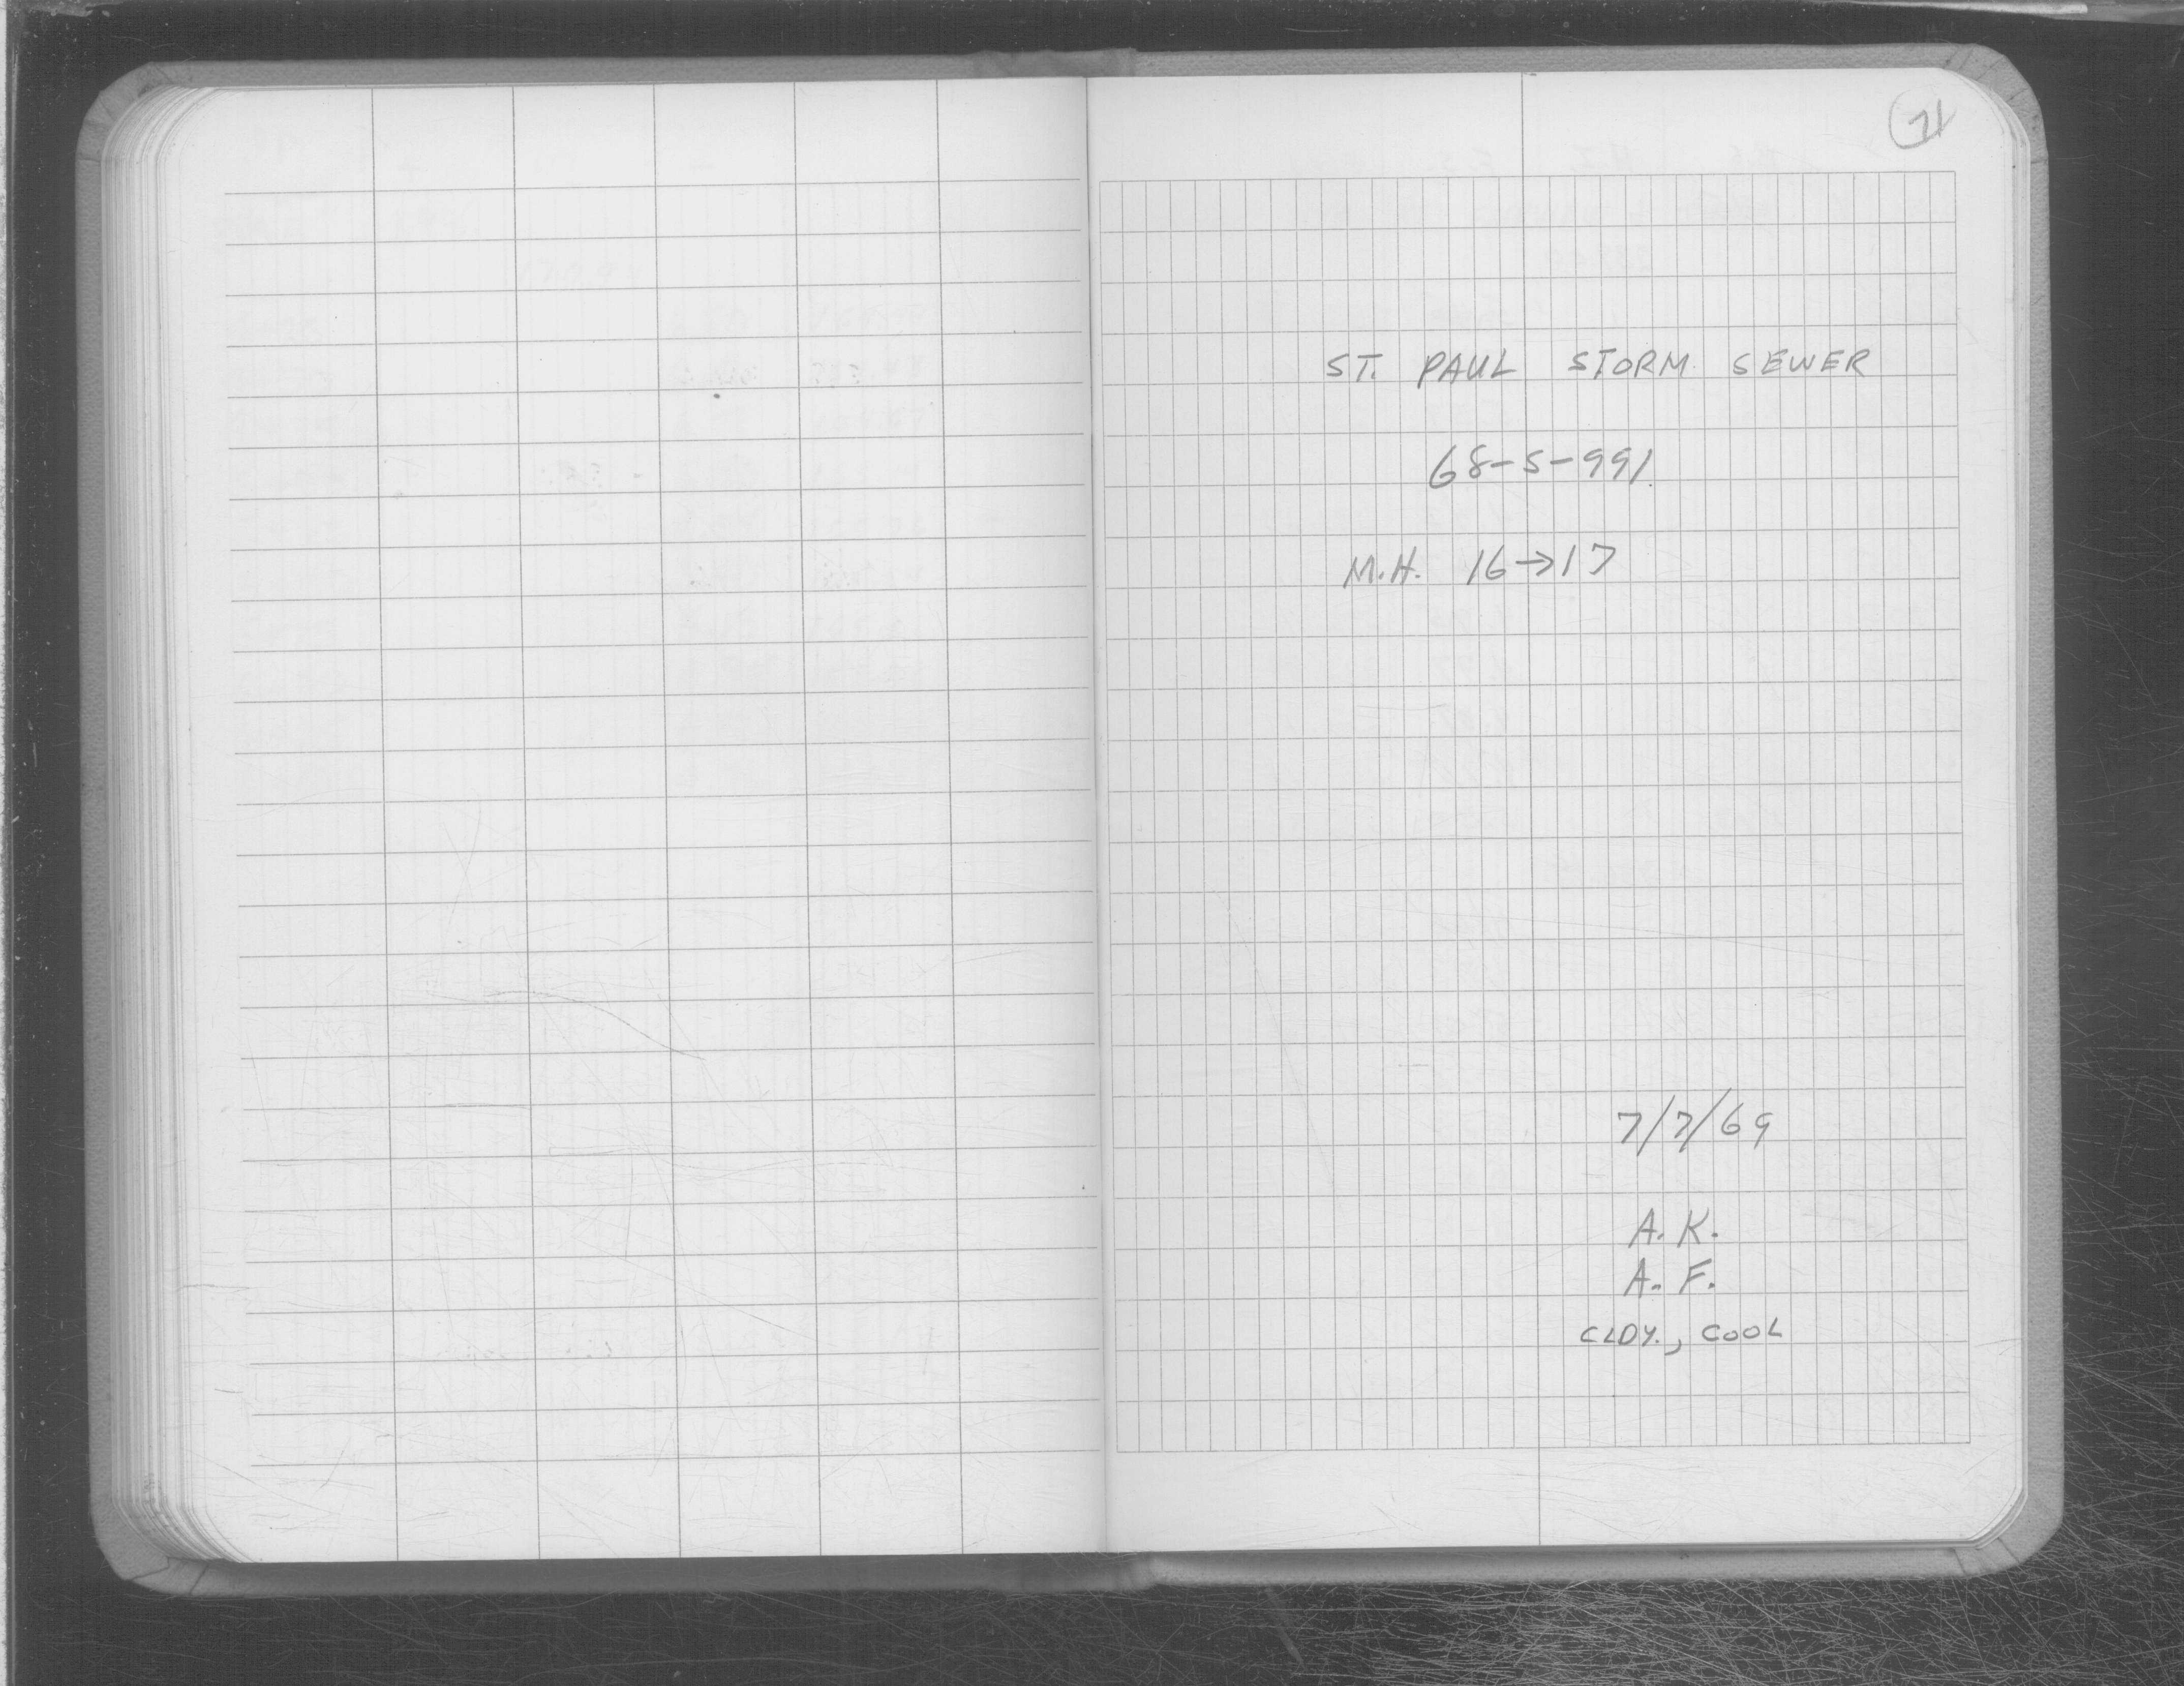 71
ST. PAUL STORM SEWER
68-S-991
M.H. 16→17
7/7/69
A. K.
A. F.
CLDY., COOL